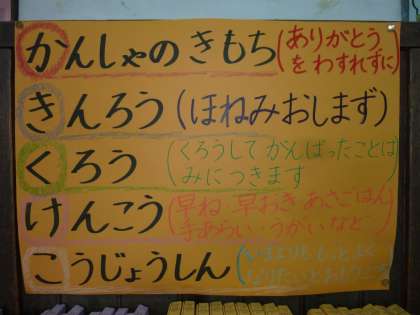 かんしゃのきもち(ありがとう
をわすれずに)
きんろう(ほねみおしまず)
くろう(くろうしてがんばったことは
みにつきます
けんこう(早ね・早おき あさごはん
手あらい・うがいなど)
こうじょうしん(いまよりももっとよく
なりたいとおもうこころ